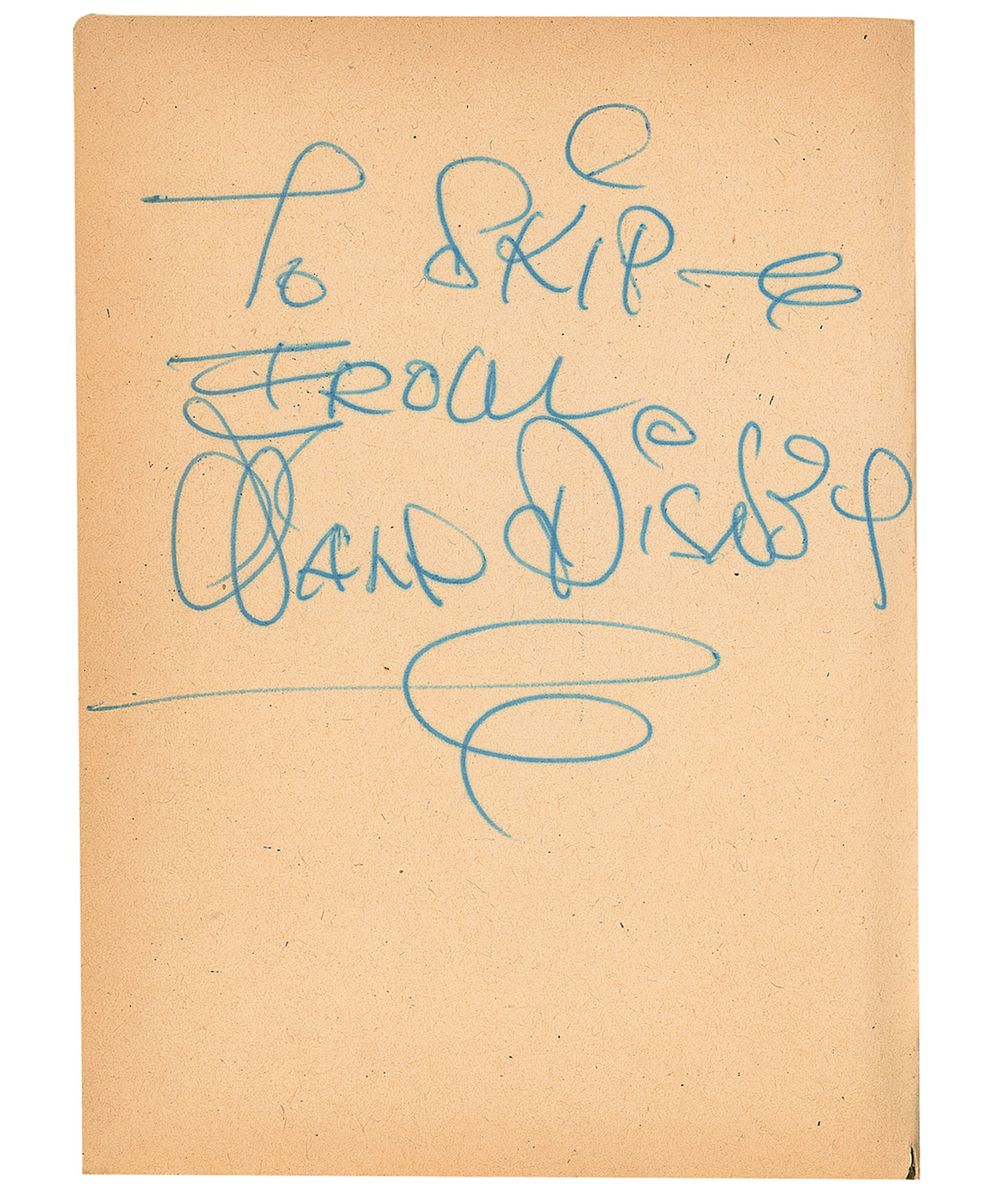 To Skip—
From
Walt Disney